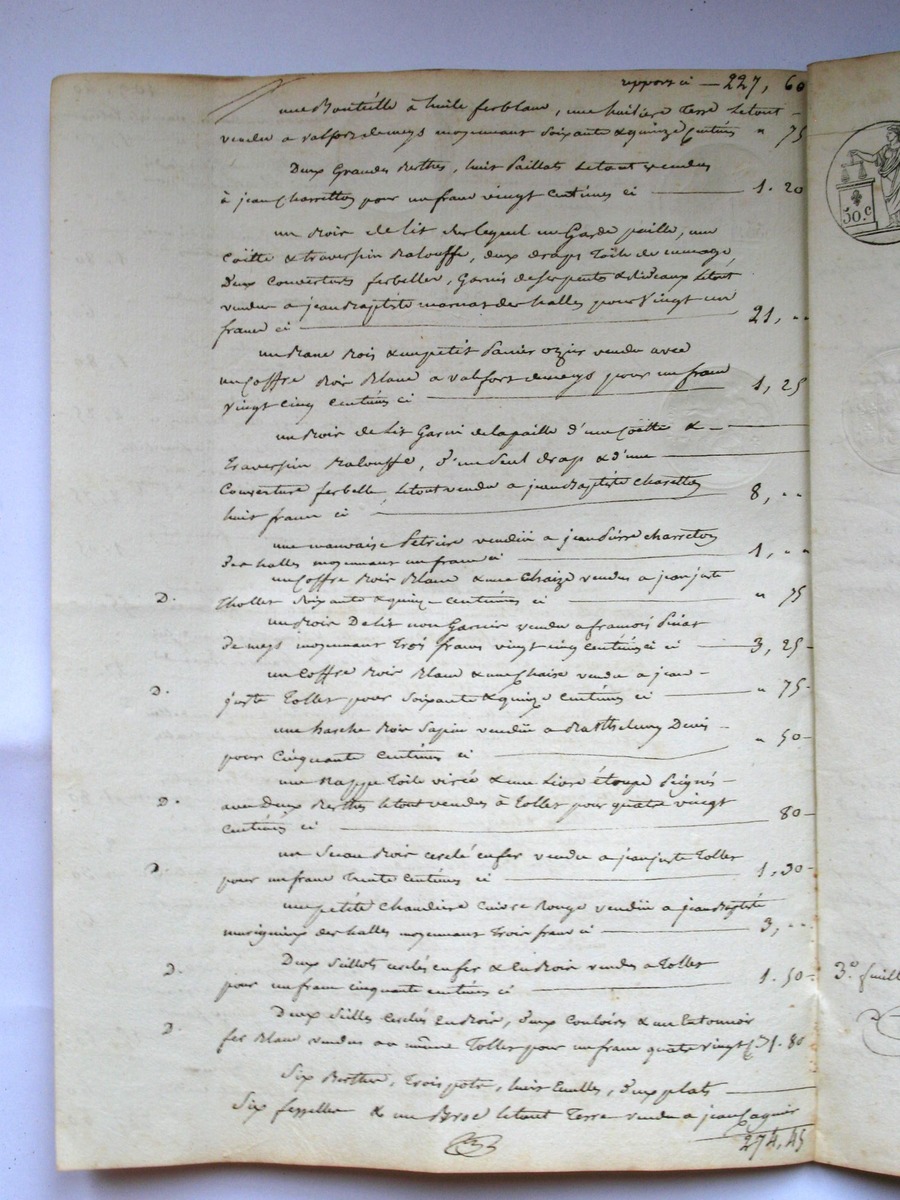 report ci — 227, 60
une Bouteille à huile ferblanc, une huiliere Terre Le tout
vendu a valfort demeys moyennant Soixante & quinze Centimes " 75
Deux Grandes Berthes, huit Paillats Le tout vendus
à jean Charretton pour un franc vingt Centimes ci — 1. 20
un Bois de lit sur lequel un Garde paille, une
Coëtte & traversin Balouffe, deux draps Toile de menage
Deux Couvertures ferbelle, Garni de serpente & Rideaux Letout
vendu a jean Baptiste marnat des halles pour Vingt un
francs ci — 21, ..
un Banc Bois & un petit Panier ozier vendu avec
un Coffre Bois Blanc a valfort demeys pour un franc
Vingt Cinq Centimes ci — 1, 25
un Bois de Lit Garni de la paille d'une Coëtte & —
Traversin Balouffe, d'un Seul drap & d'une —
Couverture ferbelle, Letout vendu a jean Baptiste Charetton
huit francs ci — 8, ..
une mauvaise Petriere vendüe a jean Pierre Charretton
des halles moyennant un franc ci — 1, ..
un Coffre Bois Blanc & une Chaize vendus a jean juste
D. Thollet Soixante & quinze Centimes ci — " 75
un Bois De Lit non Garni vendu a françois Pinat
de meys moyennant Trois francs vingt cinq Centimes ci — 3, 25 —
un Coffre Bois Blanc & une Chaise vendu a jean —
D. juste Tollet pour Soixante & quinze Centimes ci — " 75 —
une Barche Bois Sapin vendüe a Barthelemy Denis —
pour Cinquante Centimes ci — " 50 —
une Nappe Toile & une Livre étoupe Peignés —
D. avec Deux Berthes Letout vendus à Tollet pour quatre vingt
Centimes ci — 80 —
un Seau Bois cerclé en fer vendu a jean juste Tollet
D. pour un franc Trente Centimes ci — 1. 30 —
une petite Chaudiere Cuivre Rouge vendüe a jean Baptiste
des halles moyennant Trois francs ci — 3, ..
D. Deux Seillots cerclés en fer & en Bois vendus a Tollet
pour un franc cinquante centimes ci — 1. 50 —
D. Deux Seilles Cerclés En Bois, Deux Couloirs & un Entonnoir
fer Blanc vendus au même Tollet pour un franc quatre vingt 1. 80
Six Berthes, Trois pots, huit Ecuelles, Deux plats —
Six fesselles & un Broc Letout Terre vendu a jean
274, 45
30. c
3e. feuill